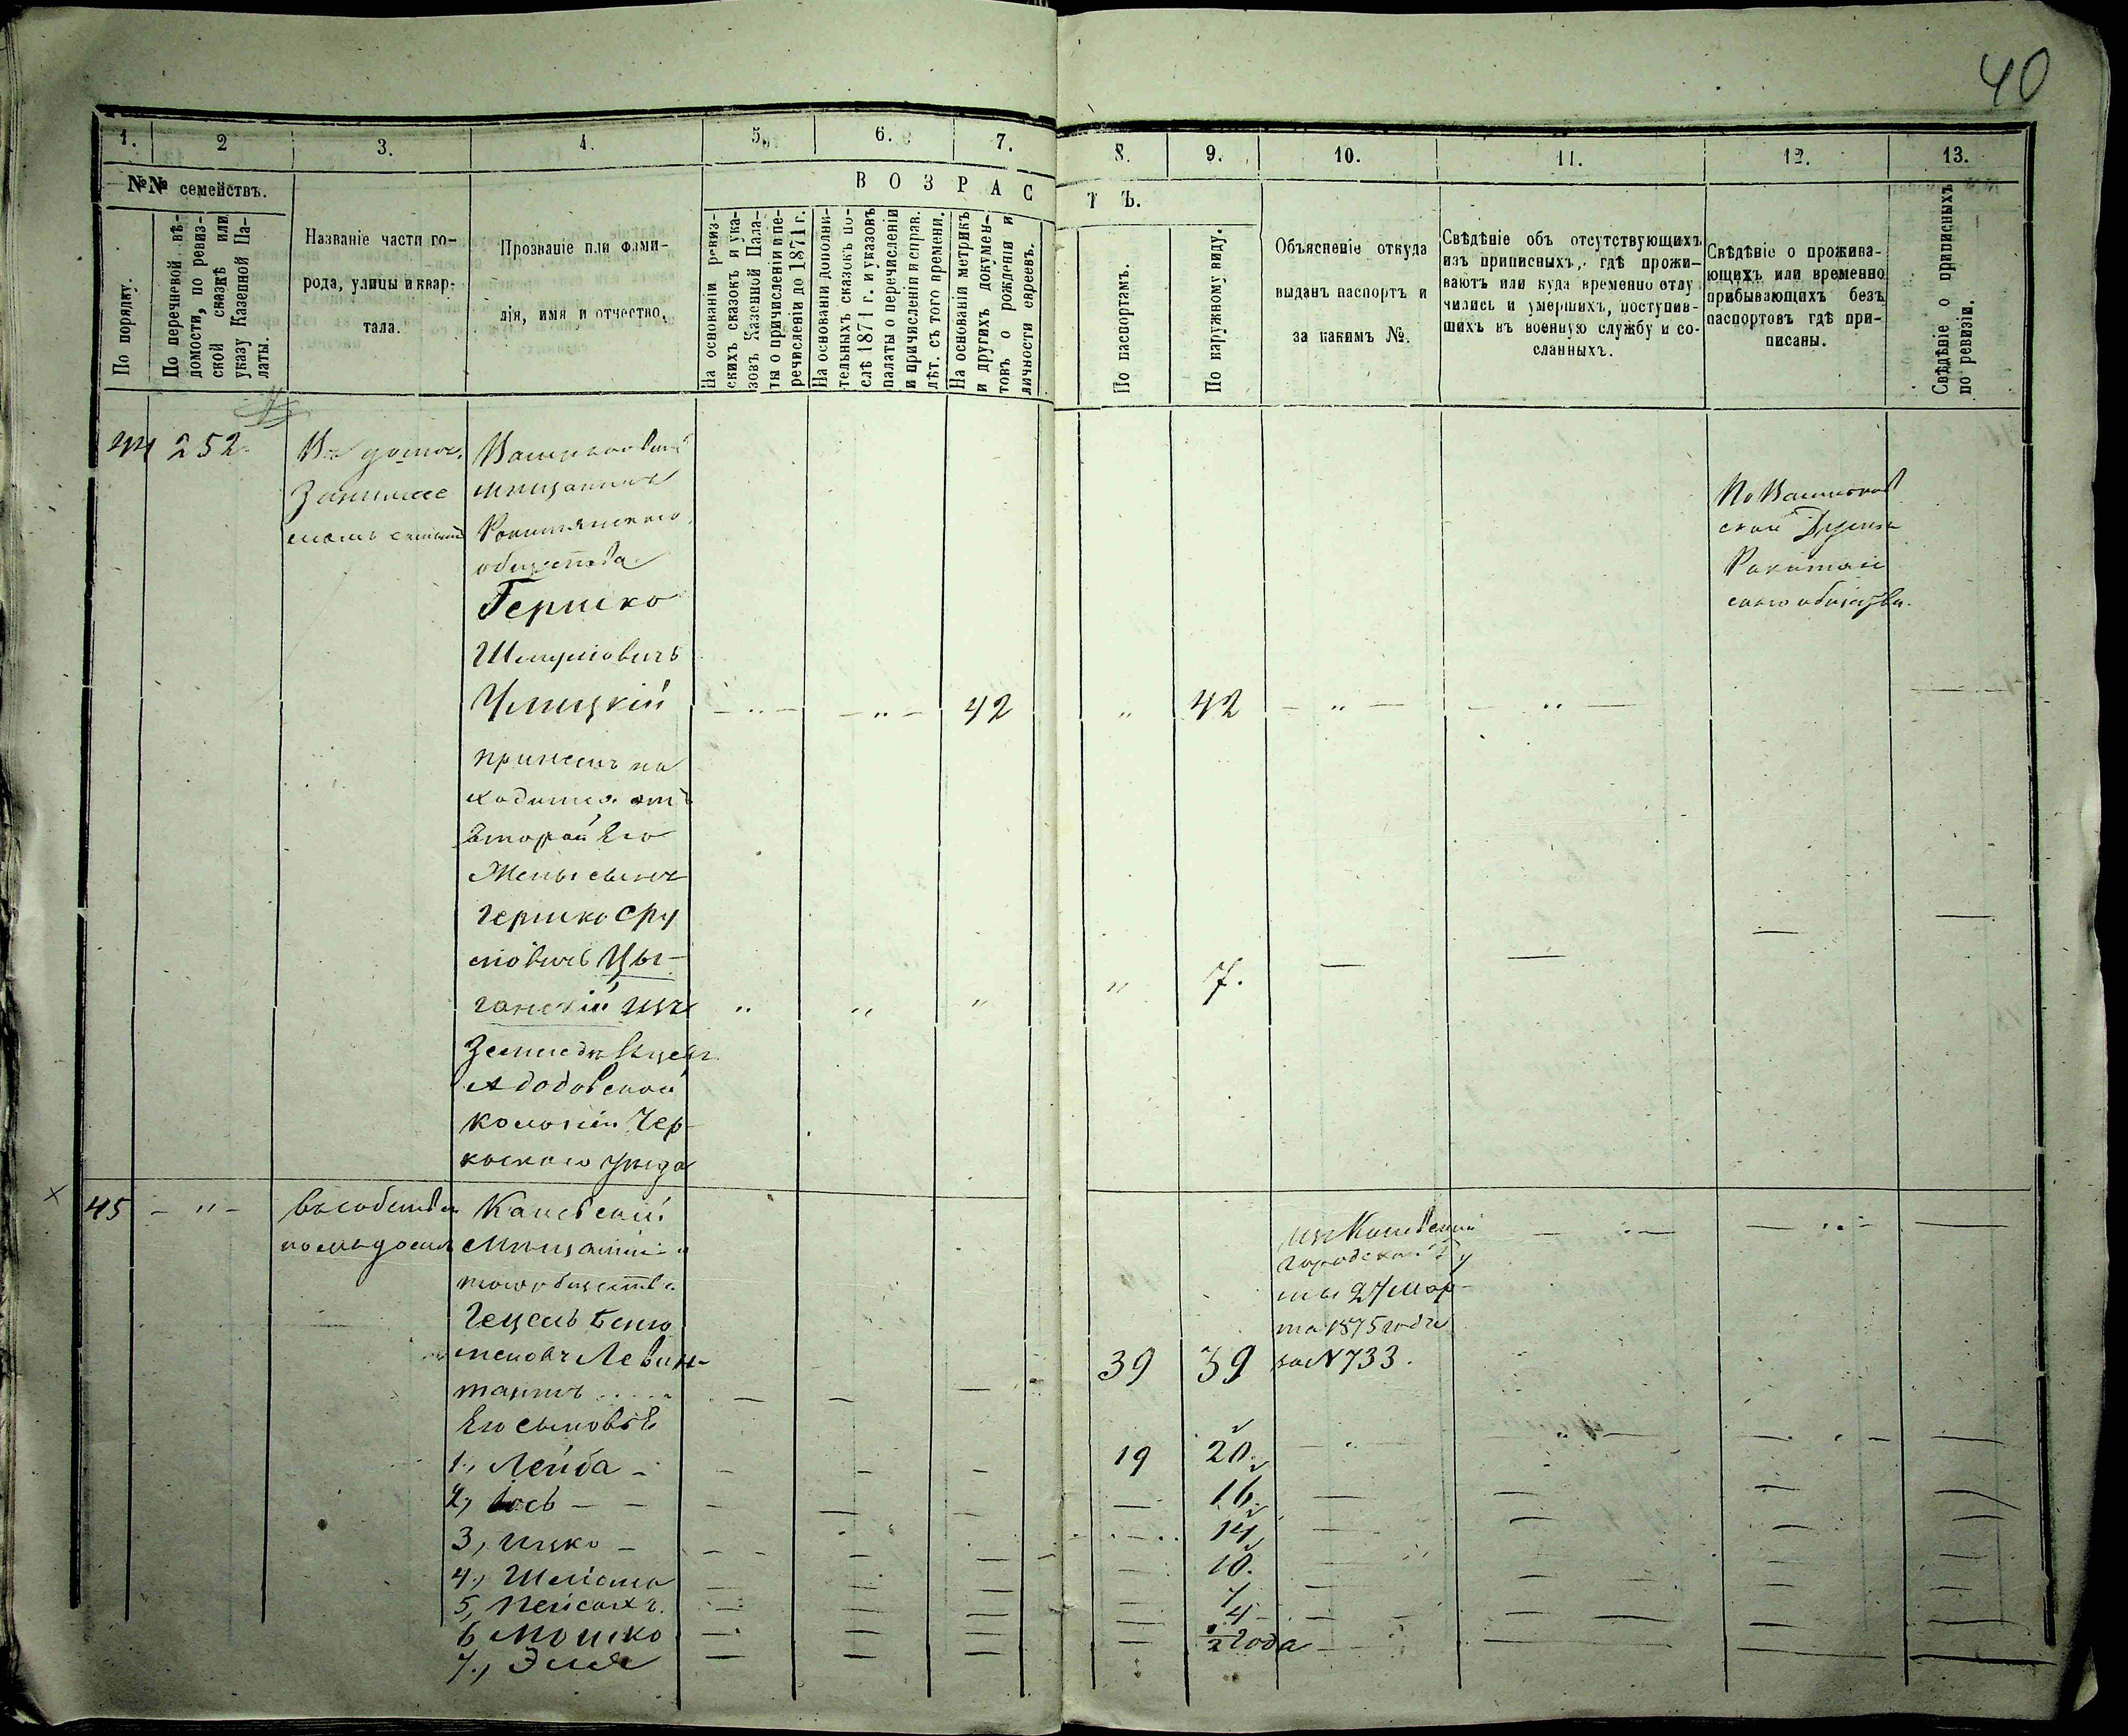 40
1. 2 3. 4. 5. 6. 7. 8. 9. 10. 11. 12. 13.
№№ семействъ.
По порядку.
По перечневой вѣ-
домости, по ревиз-
ской сказкѣ или
указу Казенной Па-
латы.
Названіе части го-
рода, улицы и квар-
тала.
Прозваніе или фами-
лія, имя и отчество.
ВОЗРАСТЪ.
На основаніи ревиз-
скихъ сказокъ и ука-
зовъ Казенной Пала-
ты о причисленіи и пе-
речисленіи до 1871 г.
На основаніи дополни-
тельныхъ сказокъ по-
слѣ 1871 г. и указовъ
палаты о перечисленіи
и причисленіи и справ.
лѣт. съ того времени.
На основаніи метрикъ
и другихъ докумен-
товъ о рожденіи и
личности евреевъ.
По паспортамъ.
По наружному виду.
Объясненіе откуда
выданъ паспортъ и
за какимъ №.
Свѣдѣніе объ отсутствующихъ
изъ приписныхъ, гдѣ прожи-
ваютъ или куда временно отлу
чились и умершихъ, поступив-
шихъ въ военную службу и со-
сланныхъ.
Свѣдѣніе о прожива-
ющихъ или временно
прибывающихъ безъ
паспортовъ гдѣ при-
писаны.
Свѣдѣніе о приписныхъ
по ревизіи.
44 252.
Въ домѣ
Васильковскій
мѣщанинъ
общества
Гершко
Шмулiовичъ
42 " 42
находится отъ
второй его
Жены сынъ
Гершко Сру
лiовичъ Цы-
ганскій изъ " " " " 7.
колоніи Чер-
каскаго уѣзда
По Васильков
ской Думѣ
скаго общества.
45 - " -
Въ собствен
номъ домѣ
Каневскій
мѣщанинъ
того общества
Гецель
Левин-
таннъ 39 39
изъ Каневской
городской Ду
мы 27 Мар-
та 1875 года
за № 733.
Его сыновья
1., Лейба - 19 20.
2, Іось - - 16.
3, Ицко - 14
4., Шлiома 10.
5, Пейсахъ. 7
6 Мошко 4
7., Эля ½ года